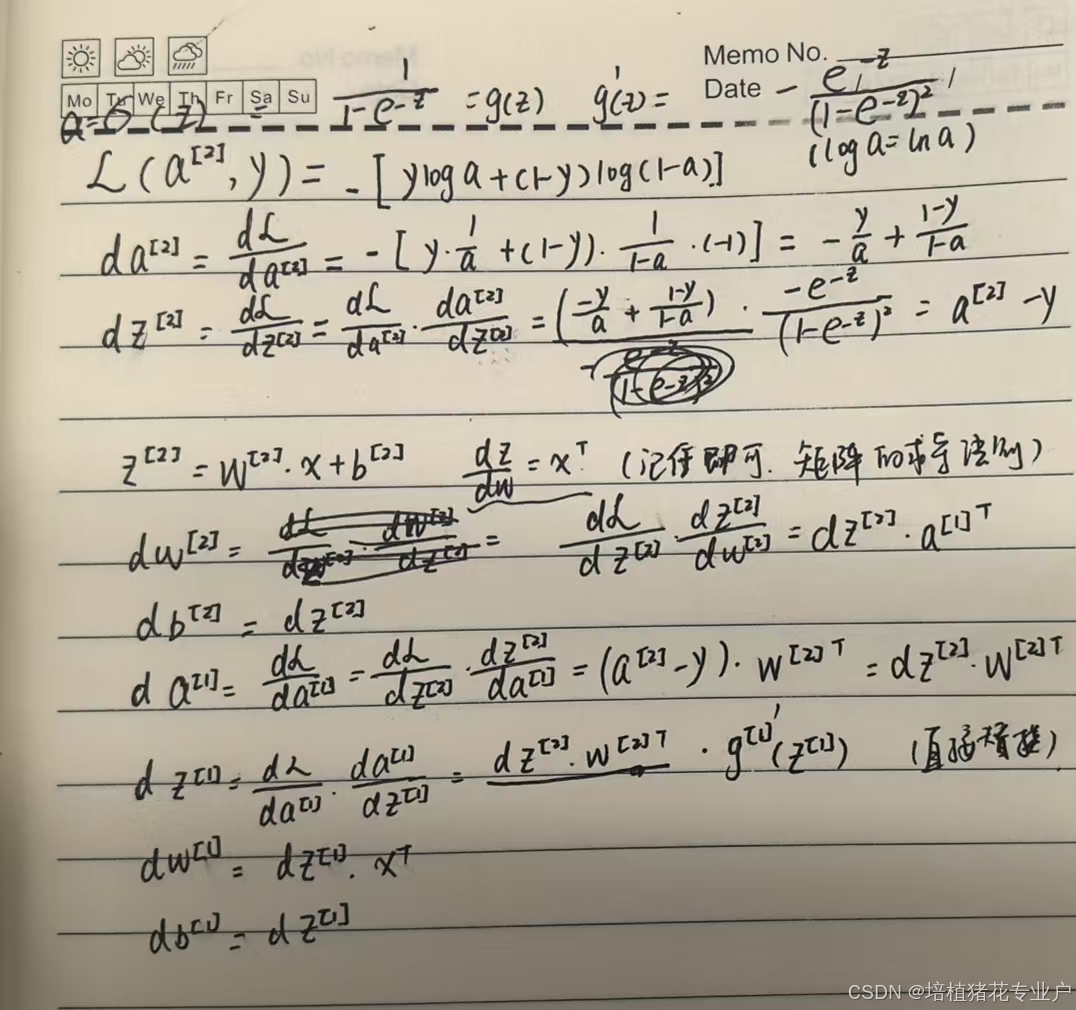 Memo No.
Mo Tu We Th Fr Sa Su
Date
a=σ(z) = 1/(1-e^-z) = g(z) g'(z) = - e^-z/(1-e^-z)²
(log a = ln a)
L(a^[2], y) = -[y log a + (1-y) log(1-a)]
da^[2] = dL/da^[2] = -[y·1/a + (1-y)·1/(1-a)·(-1)] = -y/a + (1-y)/(1-a)
dz^[2] = dL/dz^[2] = dL/da^[2] · da^[2]/dz^[2] = (-y/a + (1-y)/(1-a)) · -e^-z/(1-e^-z)² = a^[2] - y
z^[2] = W^[2]·x + b^[2] dz/dw = x^T (记住即可. 矩阵的求导法则)
dw^[2] = = dL/dz^[2] · dz^[2]/dw^[2] = dz^[2]·a^[1]T
db^[2] = dz^[2]
da^[1] = dL/da^[1] = dL/dz^[2] · dz^[2]/da^[1] = (a^[2]-y)·W^[2]T = dz^[2]·W^[2]T
dz^[1] = dL/da^[1] · da^[1]/dz^[1] = dz^[2]·w^[2]T · g^[1]'(z^[1]) (直接
dw^[1] = dz^[1]·x^T
db^[1] = dz^[1]
CSDN @培植猪花专业户